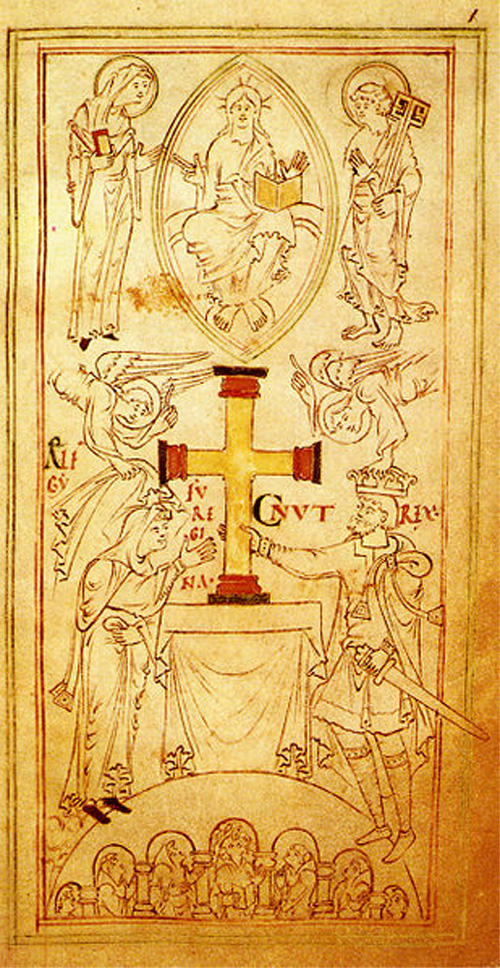 1
ÆLF
GẎ
FU
RE
GI
NA·
CNVT REX·